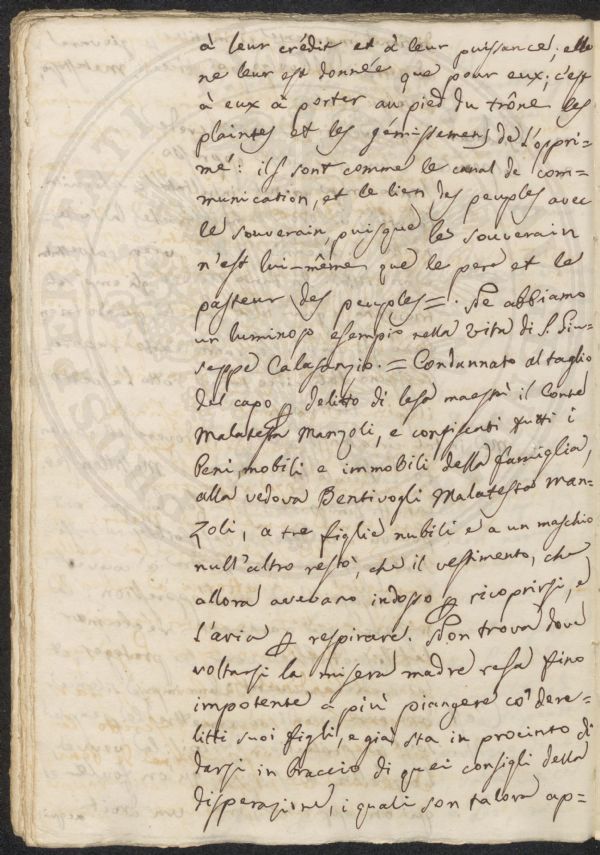 à leur crédit et à leur puissance; elle
ne leur est donnée que pour eux; c'est
à eux à porter au pied du trône les
plaintes et les gémissemens de l'oppri=
mé: ils sont comme le canal de com=
munication, et le lien des peuples avec
le souverain, puisque le souverain
n'est lui-même que le pere et le
pasteur des peuples =. Ne abbiamo
un luminoso esempio nella vita di S. Giu=
seppe Calasanzio. = Condannato al taglio
del capo ꝑ delitto di lesa maestà il Conte
Malatesta Manzoli, e confiscati tutti i
beni, mobili e immobili della famiglia,
alla vedova Bentivogli Malatesta Man=
zoli, a tre figlie nubili e a un maschio
null'altro restò, che il vestimento, che
allora avevano indosso ꝑ ricoprirsi, e
l'aria ꝑ respirare. Non trova dove
voltarsi la misera madre resa fino
impotente a più piangere co' dere=
litti suoi figli, e già sta in procinto di
darsi in braccio di quei consigli della
disperazione, i quali son talora ap=